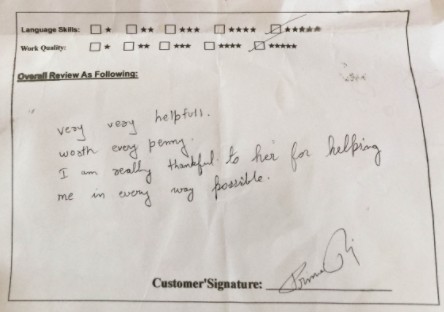 Language Skills: ☐ ★ ☐ ★★ ☐ ★★★ ☐ ★★★★ ☐ ★★★★★
Work Quality: ☐ ★ ☐ ★★ ☐ ★★★ ☐ ★★★★ ☐ ★★★★★
Overall Review As Following:
very very helpfull.
worth every penny.
I am really thankful to her for helping
me in every way possible.
Customer'Signature: